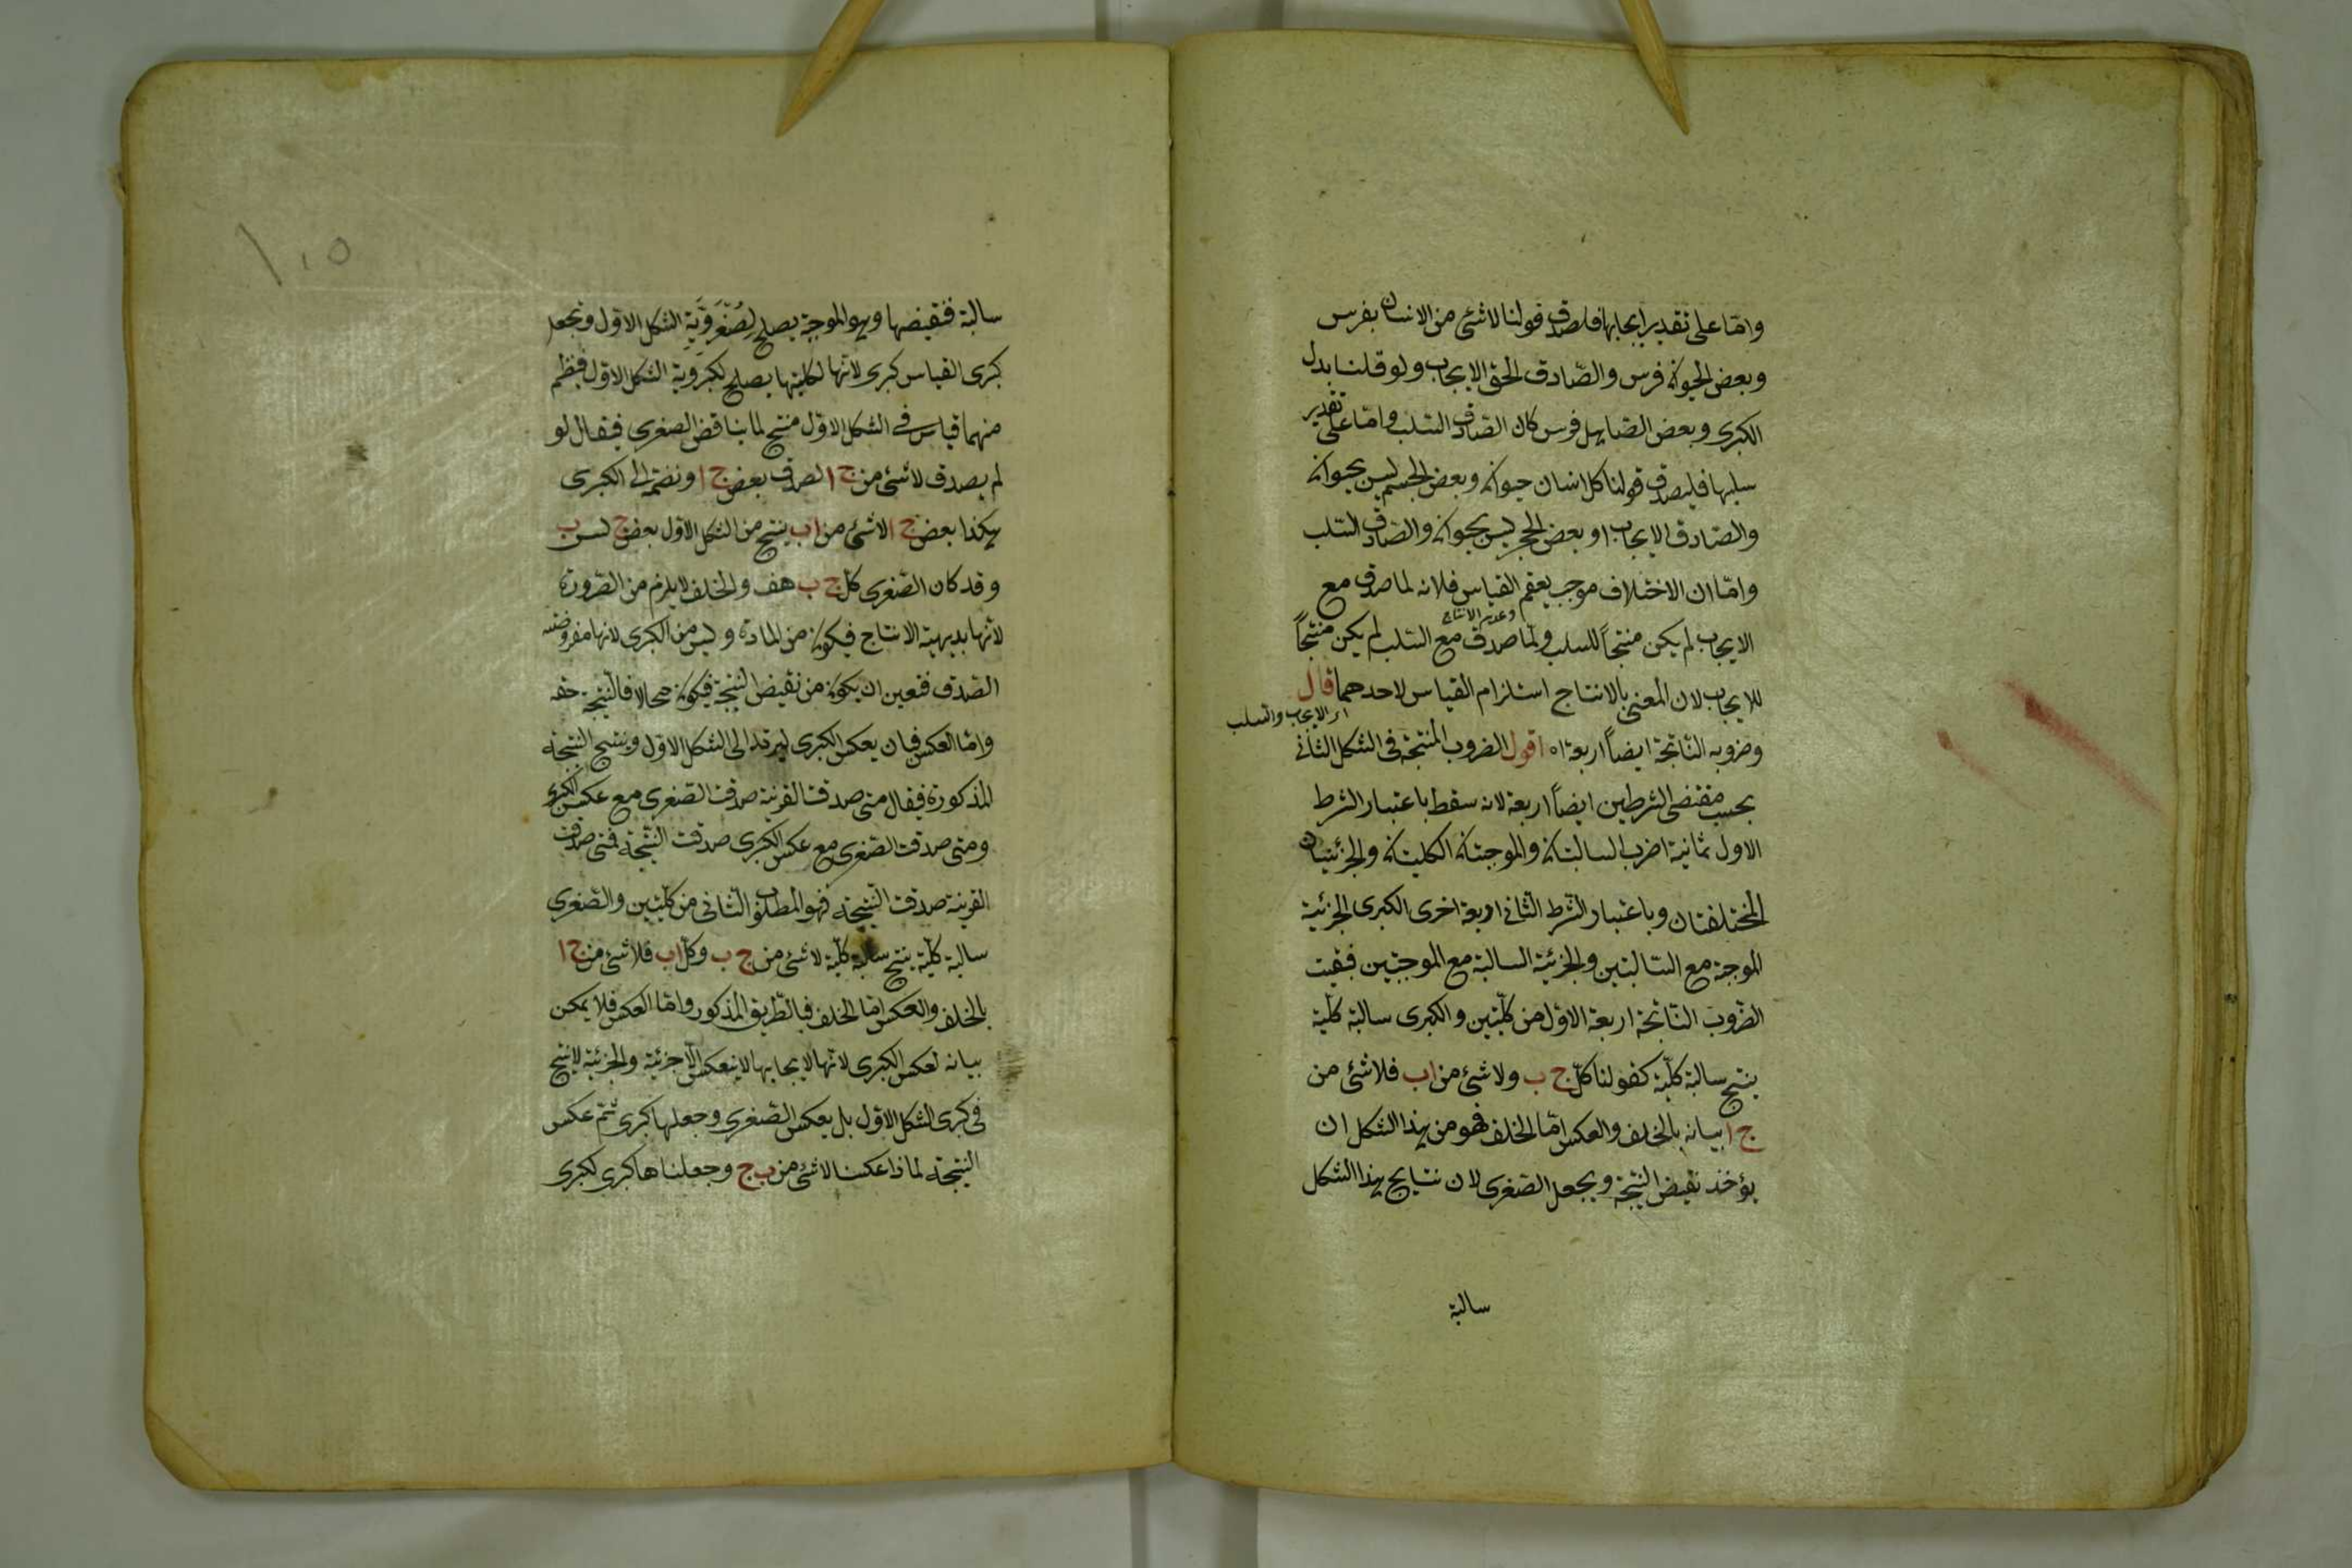 وامّا على تقدير ايجابها فلصدق قولنا لا شئ من الانسان بفرس
وبعض الحيوان فرس والصّادق الحق الايجاب ولو قلنا بدل
الكبرى وبعض الصاهل فرس كان الصّادق السّلب وامّا على تقدير
سلبها فليصدق قولنا كل انسان حيوان وبعض الجسم ليس بحيوان
والصّادق الايجاب او بعض الحجر ليس بحيوان والصّادق السّلب
وامّا ان الاختلاف موجب يعقم القياس فلانه لما صدق مع
الايجاب لم يكن منتجاً للسلب ولمّا صدق مع السّلب لم يكن منتجاً
للايجاب لان المعنى بالانتاج استلزام القياس لاحدهما قال
اى الايجاب والسلب
وضروبه النّاتجة ايضاً اربعة اه اقول الضروب المنتجة فى الشكل الثانى
بحسب مقتضى الشرطين ايضاً اربعة لانه سقط باعتبار الشرط
الاول ثمانية اضرب السالبتان والموجبتان الكليتان والجزئيتان
المختلفتان وباعتبار الشّرط الثانى اربعة اخرى الكبرى الجزئية
الموجبة مع السّالبتين والجزئية السالبة مع الموجبتين فبقيت
الضّروب النّاتجة اربعة الاوّل من كلّيتين والكبرى سالبة كلّية
ينتج سالبة كلّية كقولنا كلّ ج ب ولا شئ من ا ب فلا شئ من
ج ا بيانه بالخلف والعكس امّا الخلف فهو من هذا الشكل ان
يؤخذ نقيض النتيجة ويجعل الصّغرى لان نتايج هذا الشكل
سالبة
سالبة فنقيضها وهو الموجبة يصلح لِصُغْرَوِيَّةِ الشكل الاوّل وتجعل
كبرى القياس كبرى لانّها لكليتها يصلح لكبروية الشكل الاوّل فينظم
منهما قياس فى الشكل الاوّل منتج لما يناقض الصغرى فيقال لو
لم يصدق لا شئ من ج ا لصدق بعض ج ا ونضمّه الى الكبرى
هكذا بعض ج ا لا شئ من ا ب ينتج من الشكل الاوّل بعض ج ليس ب
وقد كان الصّغرى كلّ ج ب هف والخلف لا يلزم من الصّورة
لانّها بديهية الانتاج فيكون من المادة وليس من الكبرى لانها مفروضة
الصّدق فتعين ان يكون من نقيض النتيجة فيكون محالا فالنّتيجة حقه
وامّا العكس فبان يعكس الكبرى ليرتد الى الشكل الاوّل وينتج النّتيجة
المذكورة فيقال متى صدقت القرينة صدقت الصّغرى مع عكس الكبرى
ومتى صدقت الصّغرى مع عكس الكبرى صدقت النّتيجة فمتى صدقت
القرينة صدقت النّتيجة فهو المطلوب الثّانى من كلّيتين والصّغرى
سالبة كلّية ينتج سالبة كلّية لا شئ من ج ب وكلّ ا ب فلا شئ من ج ا
بالخلف والعكس امّا الخلف فبالطّريق المذكور وامّا العكس فلا يمكن
بيانه لعكس الكبرى لانّها لايجابها لا ينعكس الّا جزئية والجزئية لا ينتج
فى كبرى الشكل الاوّل بل يعكس الصّغرى وجعلها كبرى ثمّ عكس
النتيجة لما ذا عكسنا لا شئ من ب ج وجعلناها كبرى لكبرى